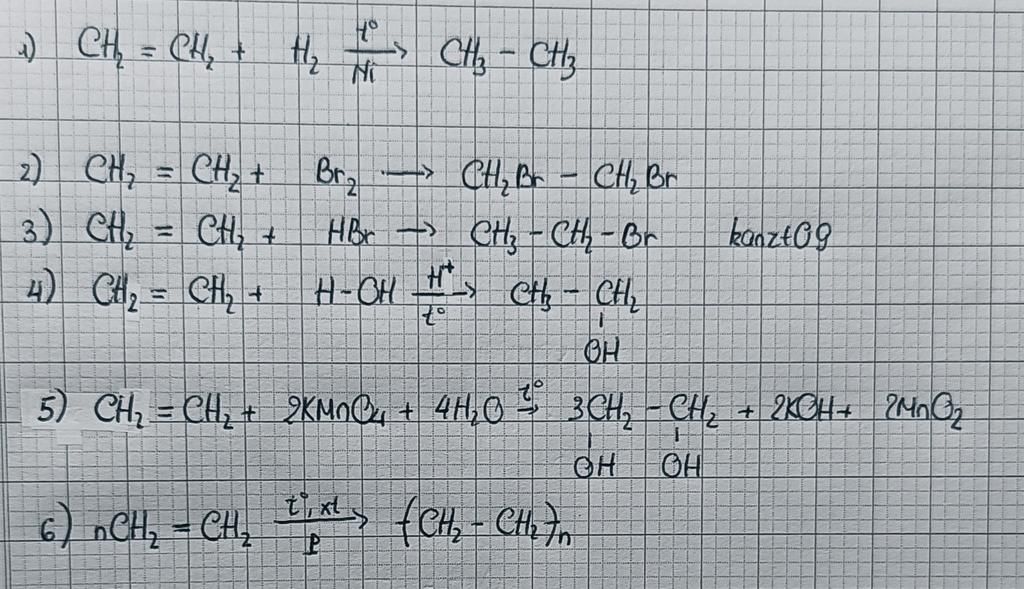 1) CH₂ = CH₂ + H₂ t° Ni → CH₃ - CH₃
2) CH₂ = CH₂ + Br₂ → CH₂Br - CH₂Br
3) CH₂ = CH₂ + HBr → CH₃ - CH₂ - Br kanzt09
4) CH₂ = CH₂ + H-OH H⁺ t° → CH₃ - CH₂
OH
5) CH₂ = CH₂ + 2KMnO₄ + 4H₂O t° → 3CH₂ - CH₂ + 2KOH + 2MnO₂
OH OH
6) nCH₂ = CH₂ t°, xt P → (CH₂ - CH₂)n